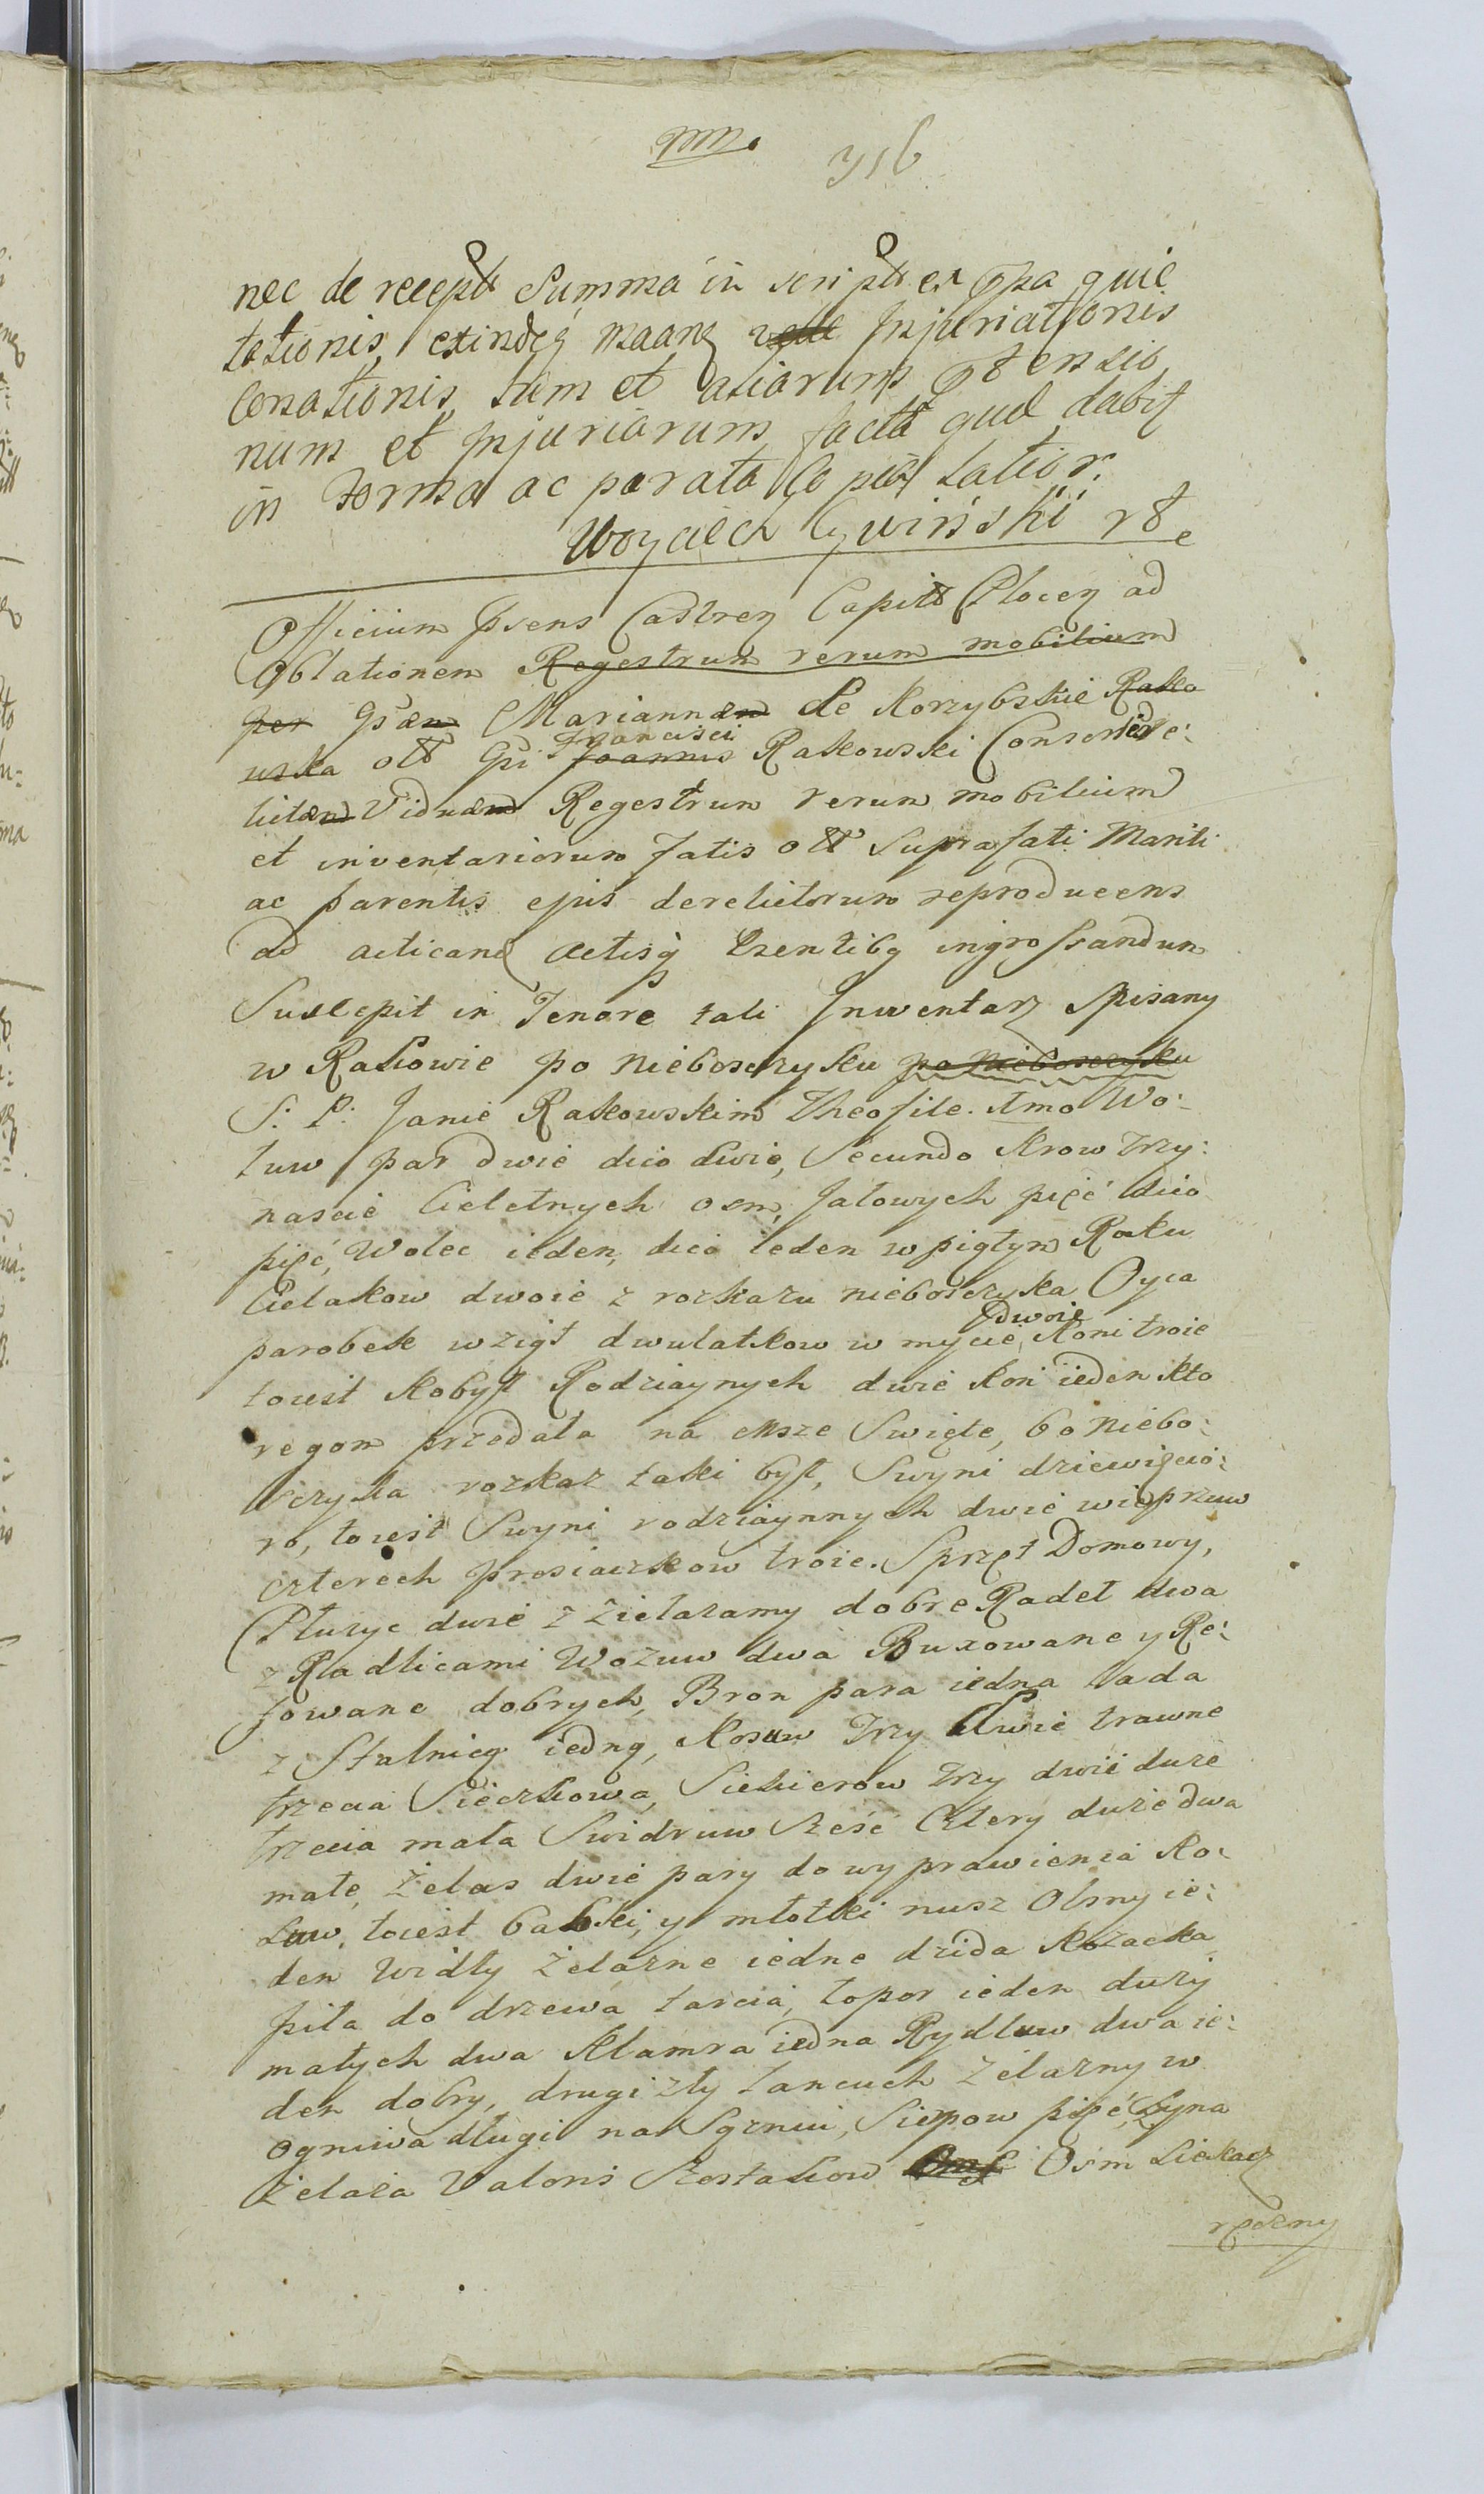 mm. 716
nec de recept Summa in script ex opa quie
tationis exindeq maanq Injuriationis
Conationis tum et aliarum ptensio
num et Injuriarum facta quae dabit
in Forma ac parata copia latior.
Woyciech Cywiński
Officium psens Castren Capit Plocen ad
Oblationem Regestrum rerum mobilium
per Gsam Mariannam de Korzybskie Rako
wska olt Gsi Francisci Joannis Rakowski Consortere:
lictam Viduam Regestrum rerum mobilium
et inventariorum fatis olt suprafati Mariti
ac parentis ejus derelictorum reproducens
ad acticand actisq psentibq ingrossandum
Suscepit in Tenore tali Inwentarz Spisany
w Rakowie po nieboszczyku po nieboszczyku
S: P: Janie Rakowskim Theofile. Imo Wo:
łuw par dwie dico dwie, Secundo Krow Trzy:
nascie Cieletnych osm, Jałowych pięć dico
pięć, Wolec ieden, dico ieden w piątym Roku
Cielakow dwoie z rozkazu nieboszczyka Oyca
parobek wziął dwulatkow w mycie, dwoie Koni troie
toiest Kobył Rodziaynych dwie Kon ieden kto
regom przedała na Msze Swięte, bo niebo:
sczyka rozkaz taki był, Swyni dziewięcio:
ro, toiest Swyni rodziaynnych dwie wieprzuw
czterech prosiaczkow troie. Sprzęt Domowy,
Płuzyc dwie z zielazamy dobre Radeł dwa
z Radlicami Wozuw dwa Buxowane y Re:
fowane dobrych, Bron para iedna lada
z Stalnicą iedną, Kosuw Trzy dwie trawne
trzecia Sieczkowa, Siekierow trzy dwie duze
trzecia mała Swidruw Szesć Cztery duze dwa
małe, Zelas dwie pary do wyprawienia Ko:
suw, toiest babki, y młotki nusz Olsny ie:
den Widły Zelazne iedne dzida Kozacka
piła do drzewa tarcia, topor ieden duzy
małych dwa Klamra iedna Rydluw dwa ie:
den dobry, drugi zły Lancuch zelazny w
ogniwa długi na Sązniu, Sierpow pięć, Szyna
zelaza Valoris Szostakow Osm Siekacz
ręczny